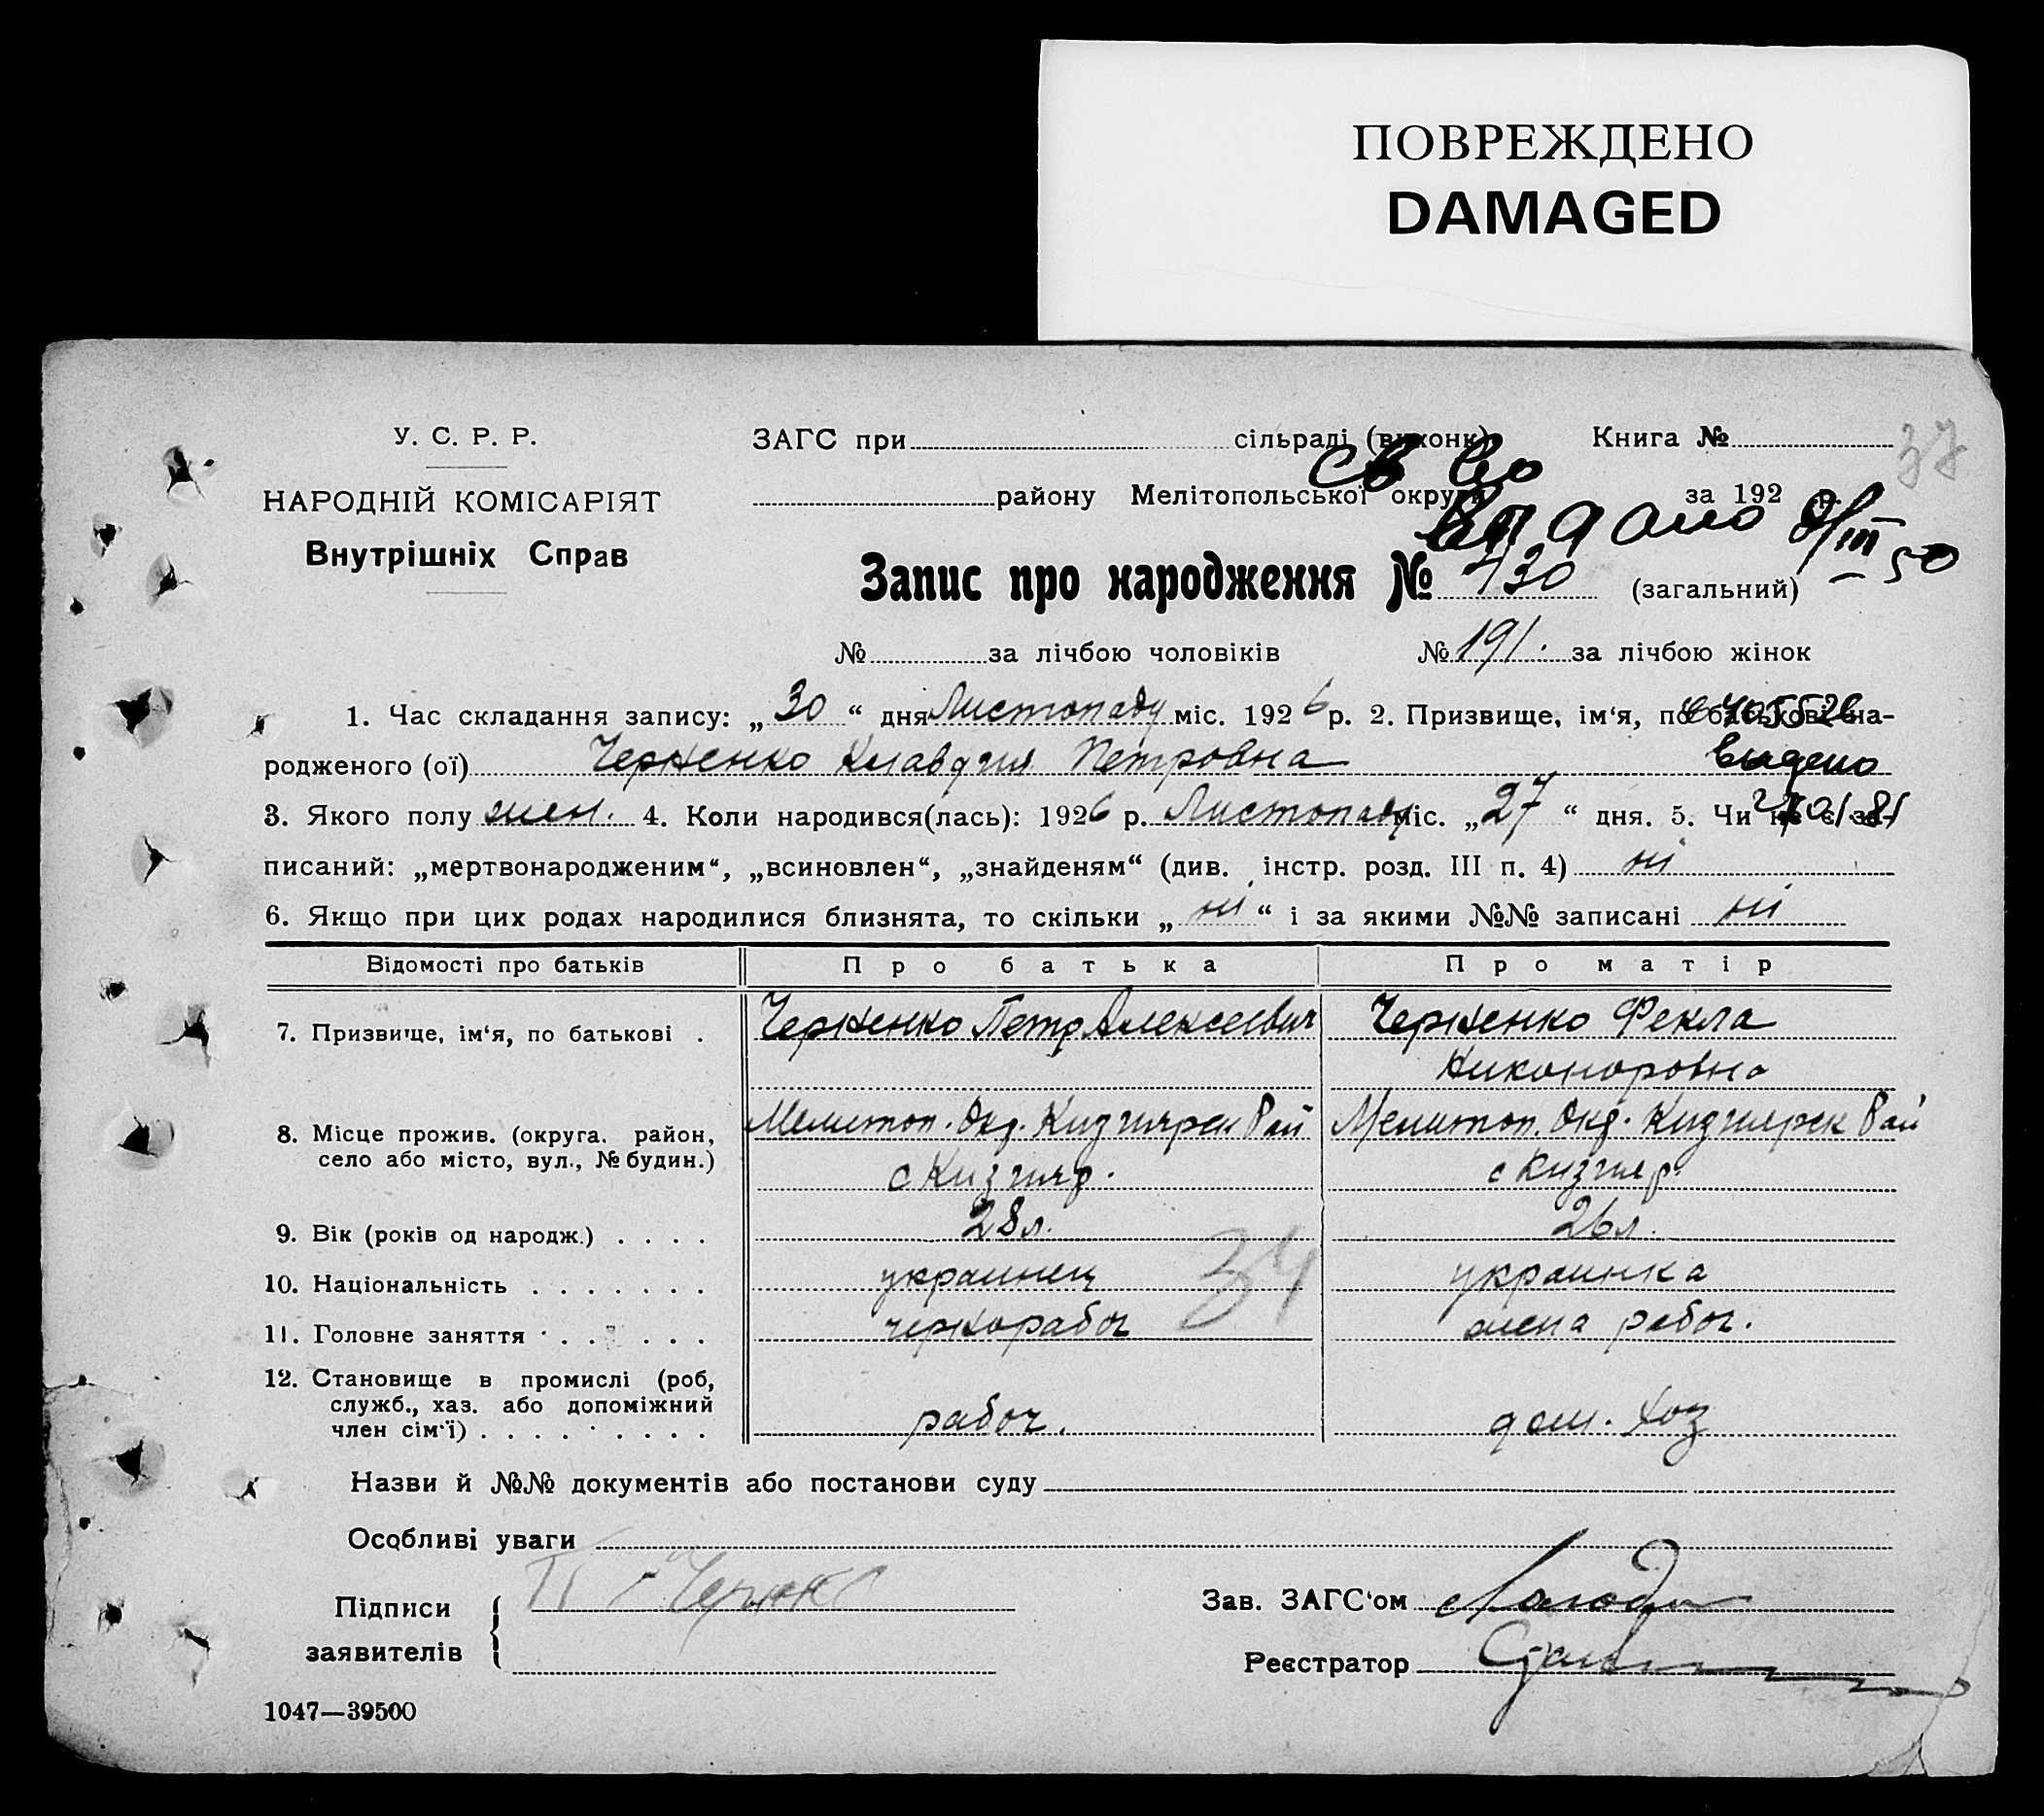 ПОВРЕЖДЕНО
DAMAGED
У. С. Р. Р.
НАРОДНІЙ КОМІСАРІЯТ
Внутрішніх Справ
ЗАГС при сільраді (виконк) Книга № 37
району Мелітопольської округи за 192 р.
Св во
Выдано 9/III 50
Запис про народження № 430 (загальний)
№ за лічбою чоловіків № 191. за лічбою жінок
1. Час складання запису: „30“ дня Листопаду міс. 1926 р. 2. Призвище, ім‘я, по батькові на-
родженого (ої) Черненко Клавдия Петровна
выдено
3. Якого полу жен. 4. Коли народився(лась): 1926 р. Листопаду міс. „27“ дня. 5. Чи не є за-
писаний: „мертвонародженим“, „всиновлен“, „знайденям“ (див. інстр. розд. III п. 4) ні
6. Якщо при цих родах народилися близнята, то скільки „ні“ і за якими №№ записані ні
Відомості про батьків Про батька Про матір
7. Призвище, ім‘я, по батькові . Черненко Петр Алексеевич Черненко Фекла
Никоноровна
8. Місце прожив. (округа. район, село або місто, вул., № будин.) Мелитоп. Окр. Кизиярск Рай Мелитоп. Окр. Кизиярск Рай
с Кизияр. с Кизияр.
9. Вік (років од народж.) . . . . 28 л. 26 л.
10. Національність . . . . . . . украинец украинка
34
11. Головне заняття . . . . . . чернорабоч жена рабоч.
12. Становище в промислі (роб,
служб., хаз. або допоміжний
член сім‘ї) . . . . . . . . . рабоч. дом. хоз
Назви й №№ документів або постанови суду
Особливі уваги
Підписи
заявителів
Зав. ЗАГС‘ом
Реєстратор
1047—39500